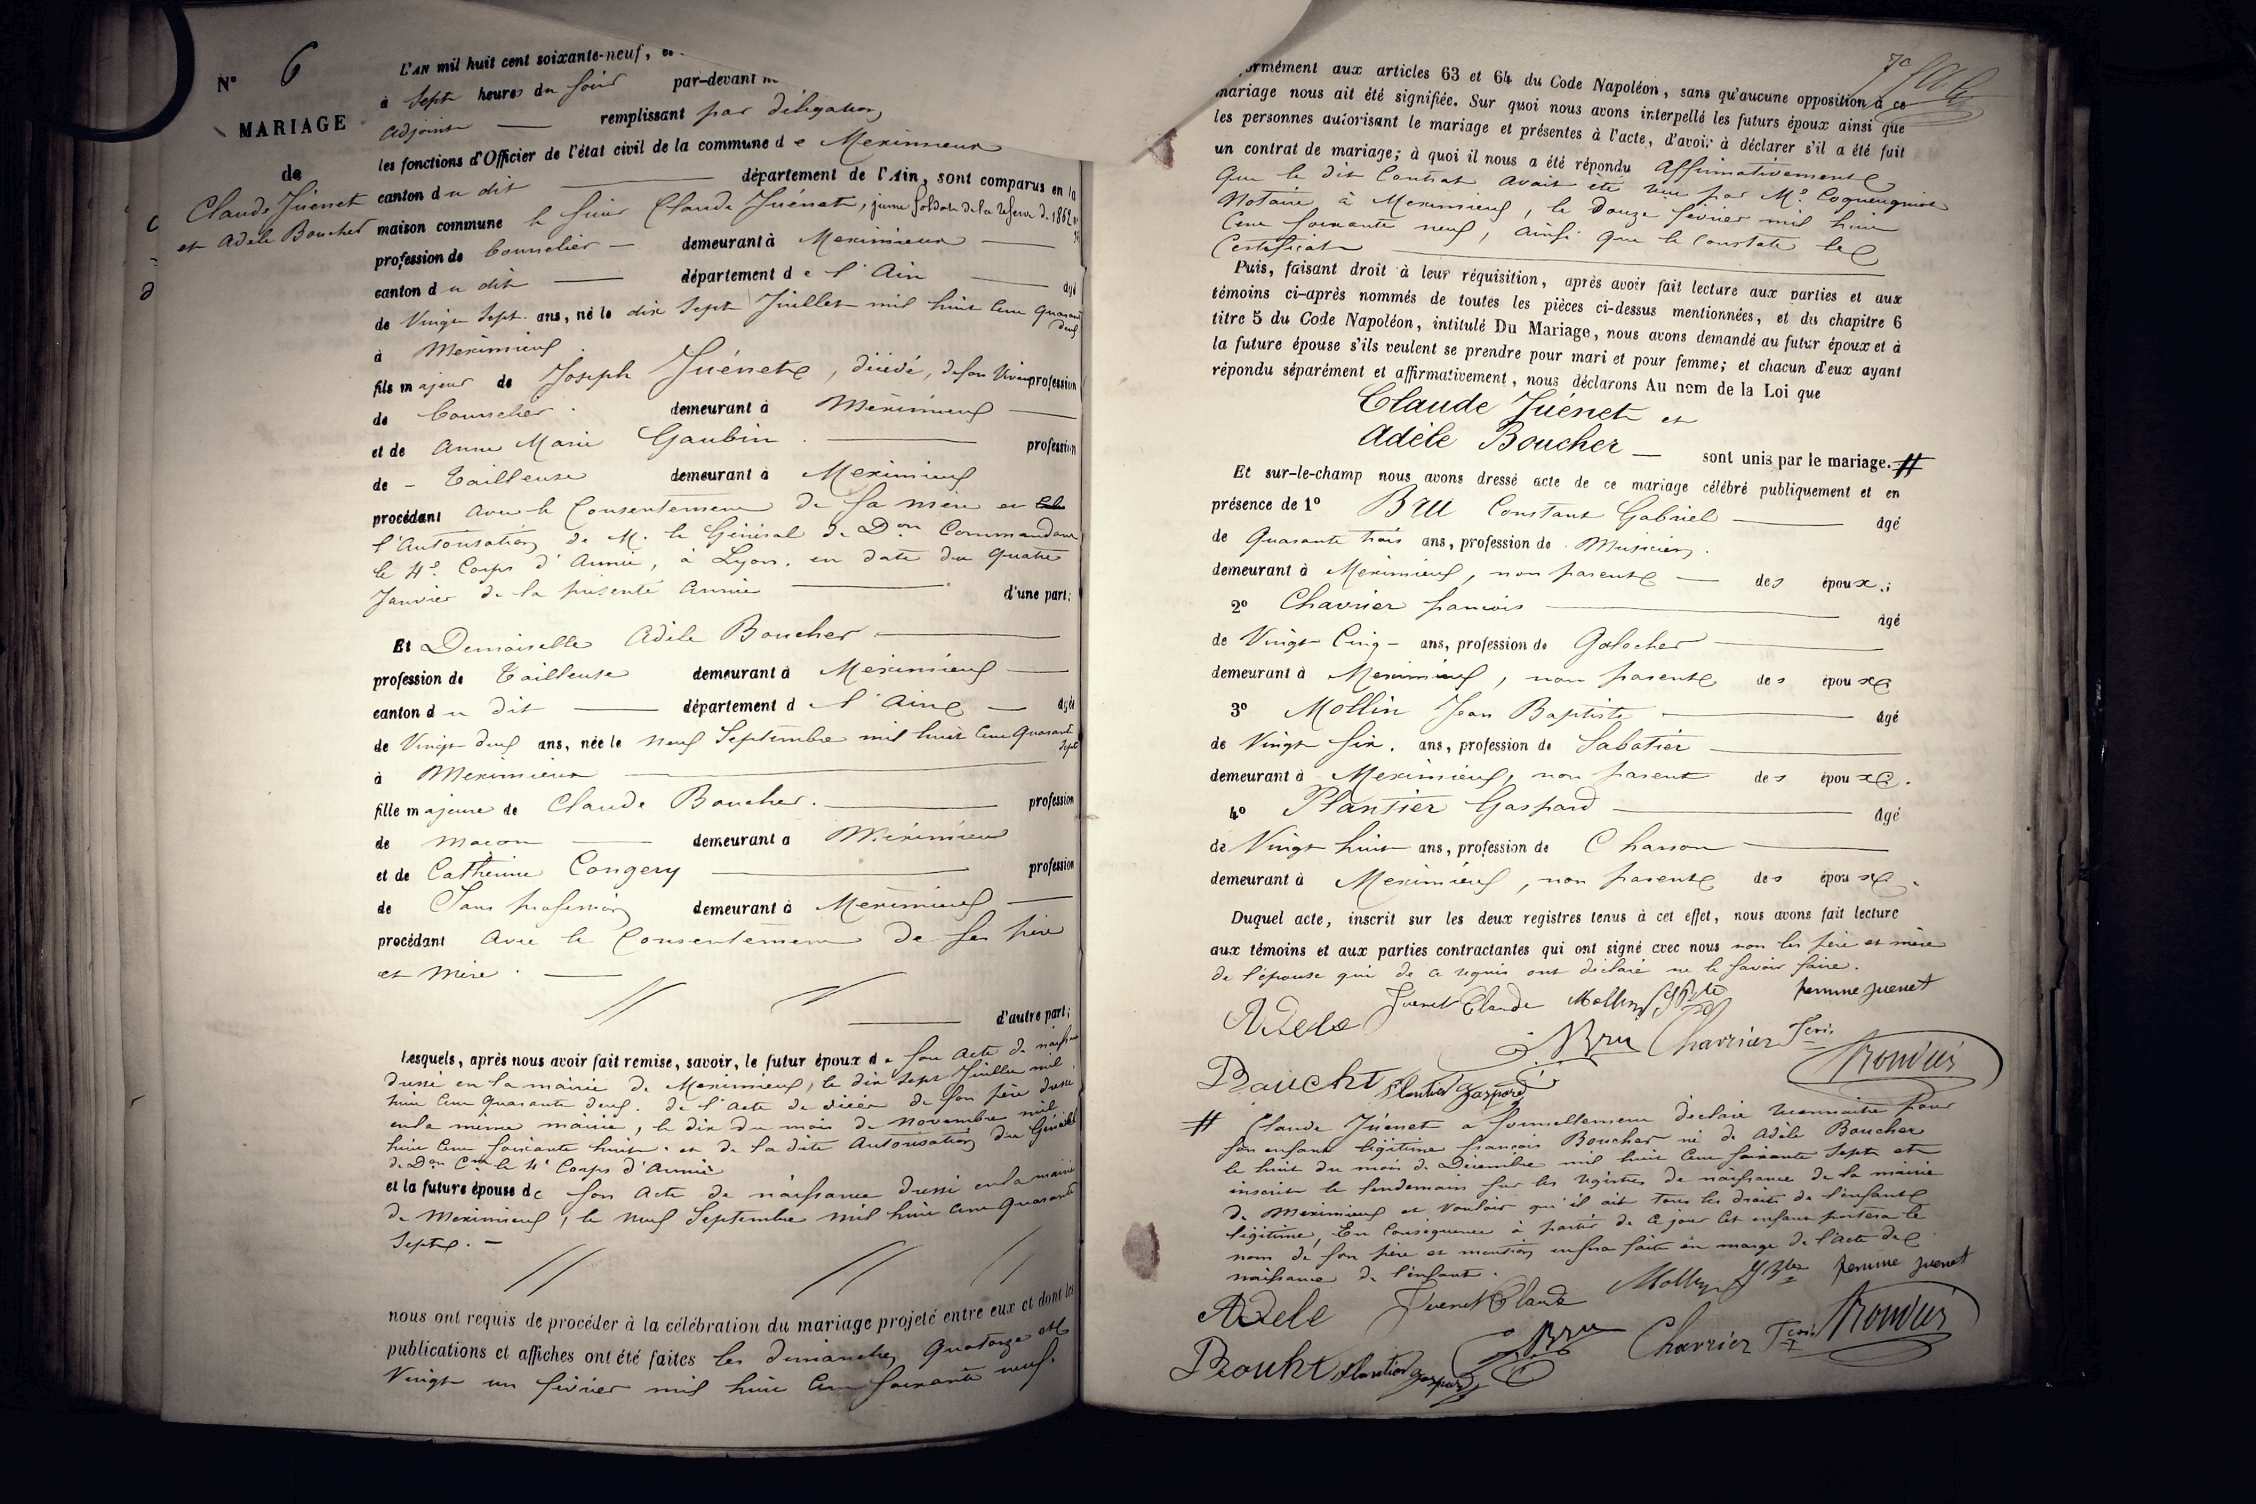 N° 6
MARIAGE
de
Claude Juénet
et Adèle Boucher
L'AN mil huit cent soixante-neuf,
à Sept heures du soir par-devant
adjoint remplissant par délégation
les fonctions d'Officier de l'état civil de la commune de Meximieux
canton du dit département de l'Ain, sont comparus en la
maison commune le sieur Claude Juénet, jeune soldat de la réserve de 1862
profession de Tourrelier demeurant à Meximieux
canton du dit département de l'Ain âgé
de Vingt Sept ans, né le dix Sept Juillet mil huit cent quarante
deux
à Meximieux
fils majeur de Joseph Juénet, décédé, de son vivant profession
de demeurant à Meximieux
et de Anne Marie Gaubin profession
de Tailleuse demeurant à Meximieux
procédant avec le Consentement de sa mère et
l'Autorisation de M. le Général de Don Commandant
le 4e Corps d'Armée, à Lyon, en date du quatre
Janvier de la présente année d'une part;
Et Demoiselle Adèle Boucher
profession de Tailleuse demeurant à Meximieux
canton du dit département de l'Ain âgée
de Vingt deux ans, née le neuf Septembre mil huit cent quarante
Sept
à Meximieux
fille majeure de Claude Boucher profession
de maçon demeurant à Meximieux
et de Catherine Congery profession
de Sans profession demeurant à Meximieux
procédant avec le Consentement de ses père
et mère
d'autre part;
Lesquels, après nous avoir fait remise, savoir, le futur époux de son acte de naissance
dressé en la mairie de Meximieux, le dix sept Juillet mil
huit cent quarante deux. de l'acte de décès de son père dressé
en la même mairie, le dix du mois de novembre mil
huit cent soixante huit. et de la dite Autorisation du Général
de Don Cmt le 4e Corps d'Armée
et la future épouse de son acte de naissance dressé en la mairie
de Meximieux, le neuf Septembre mil huit cent quarante
Sept.
nous ont requis de procéder à la célébration du mariage projeté entre eux et dont les
publications et affiches ont été faites les dimanches quatorze et
Vingt un février mil huit cent soixante neuf.
formément aux articles 63 et 64 du Code Napoléon, sans qu'aucune opposition à ce
mariage nous ait été signifiée. Sur quoi nous avons interpellé les futurs époux ainsi que
les personnes autorisant le mariage et présentes à l'acte, d'avoir à déclarer s'il a été fait
un contrat de mariage; à quoi il nous a été répondu Affirmativement
que le dit Contrat avait été reçu par Me Coqueugniot
Notaire à Meximieux, le douze février mil huit
cent soixante neuf, ainsi que le constate le
Certificat
Puis, faisant droit à leur réquisition, après avoir fait lecture aux parties et aux
témoins ci-après nommés de toutes les pièces ci-dessus mentionnées, et du chapitre 6
titre 5 du Code Napoléon, intitulé Du Mariage, nous avons demandé au futur époux et à
la future épouse s'ils veulent se prendre pour mari et pour femme; et chacun d'eux ayant
répondu séparément et affirmativement, nous déclarons Au nom de la Loi que
Claude Juénet et
Adèle Boucher sont unis par le mariage. #
Et sur-le-champ nous avons dressé acte de ce mariage célébré publiquement et en
présence de 1° Bru Constant Gabriel âgé
de Quarante trois ans, profession de Musicien
demeurant à Meximieux, non parent des époux;
2° Chavrier françois âgé
de Vingt Cinq ans, profession de Galocher
demeurant à Meximieux, non parent des époux
3° Mollin Jean Baptiste âgé
de Vingt six ans, profession de Sabotier
demeurant à Meximieux, non parent des époux.
4° Plantier Gaspard âgé
de Vingt huit ans, profession de Charron
demeurant à Meximieux, non parent des époux.
Duquel acte, inscrit sur les deux registres tenus à cet effet, nous avons fait lecture
aux témoins et aux parties contractantes qui ont signé avec nous non les père et mère
de l'épouse qui de ce requis ont déclaré ne le savoir faire.
Adele Juenet Claude Mollin femme juenet
Bru Charrier
Bouchr Plantier gaspard
# Claude Juénet a formellement déclaré reconnaître pour
son enfant légitime françois Boucher né de Adèle Boucher
le huit du mois de Décembre mil huit cent soixante Sept et
inscrit le lendemain sur les registres de naissance de la mairie
de Meximieux et vouloir qu'il ait tous les droits de l'enfant
légitime, En conséquence à partir de ce jour cet enfant portera le
nom de son père et mention en sera faite en marge de l'acte de
naissance de l'enfant.
Adele Juenet Claude Mollin femme juenet
Bru Charrier
Bouhr Plantier gaspard